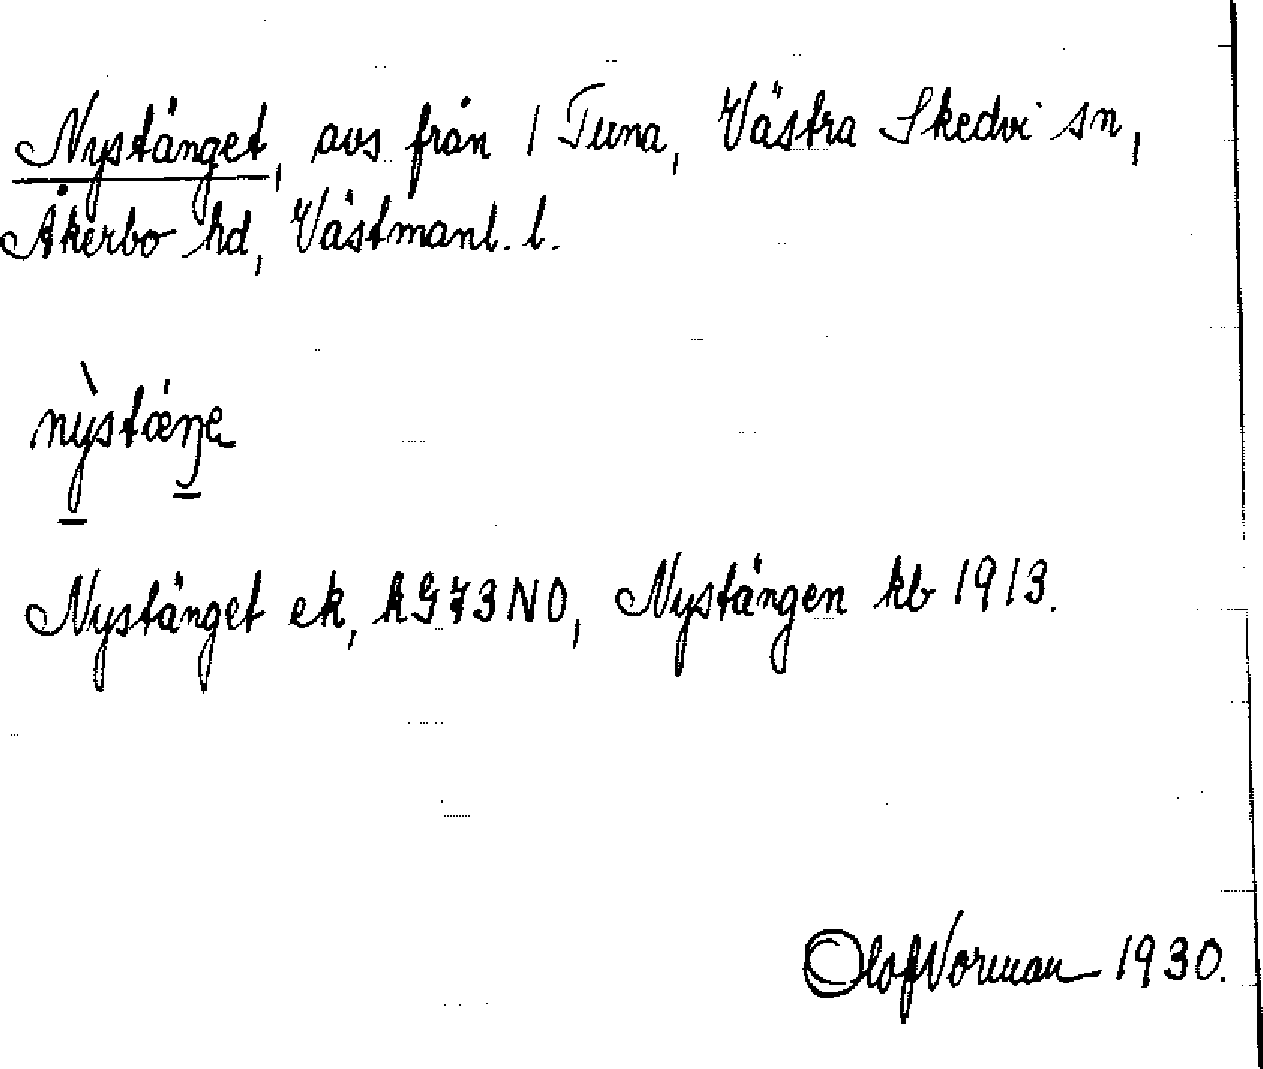 Nystänget, avs från 1 Tuna, Västra Skedvi sn,
Åkerbo hd, Västmanl. l.
nỳstæ´ŋe
Nystänget ek, kG73NO, Nystängen kb 1913.
Olof Norman 1930.